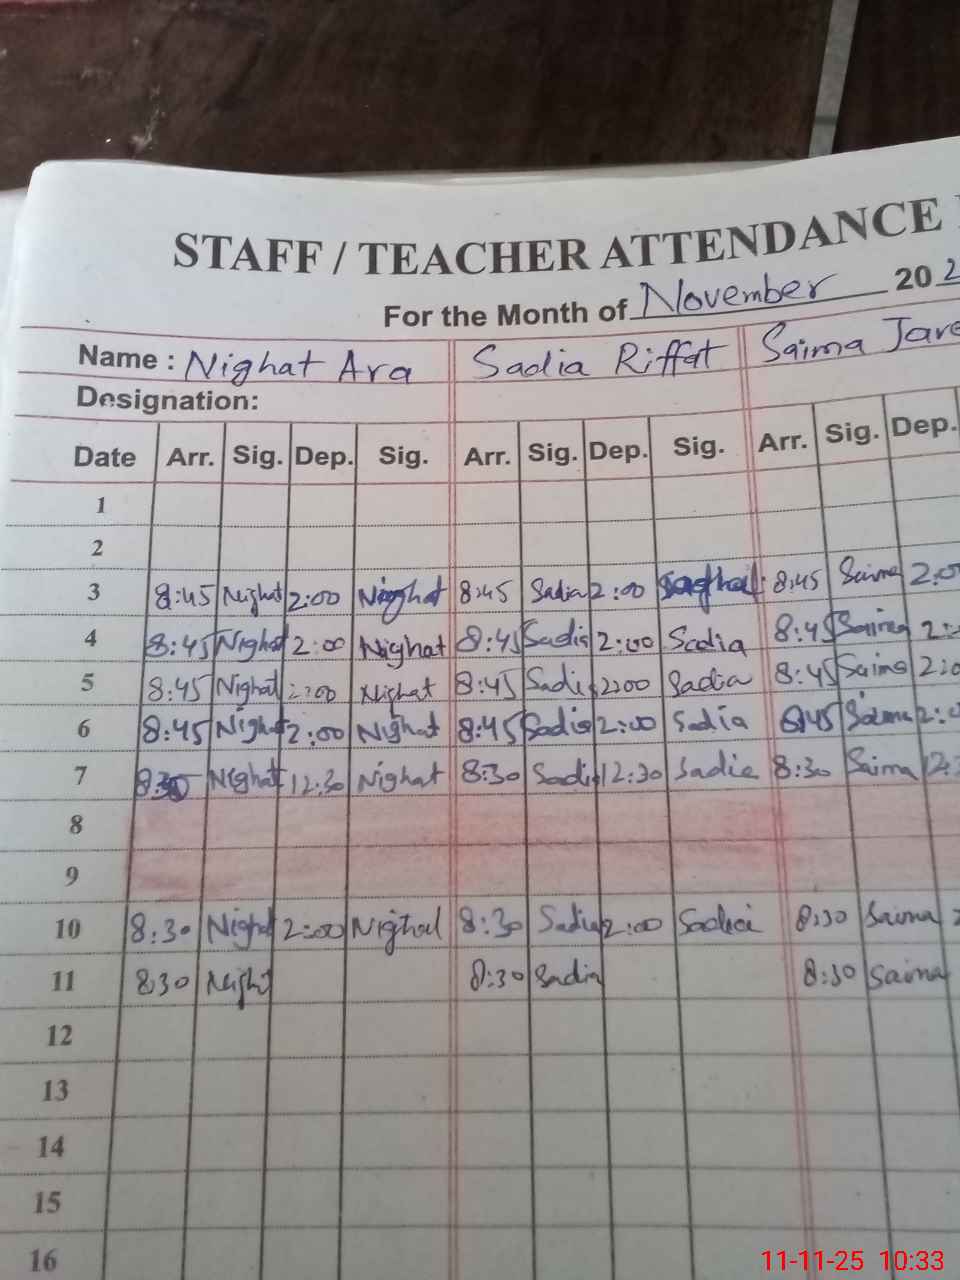 STAFF / TEACHER ATTENDANCE
For the Month of November 202
Name : Nighat Ara Sadia Riffat Saima Jare
Designation:
Date Arr. Sig. Dep. Sig. Arr. Sig. Dep. Sig. Arr. Sig. Dep.
1
2
3 8:45 Nighat 2:00 Nighat 8:45 Sadia 2:00 8:45 Saima 2:0
4 8:45 Nighat 2:00 Nighat 8:45 Sadia 2:00 Sadia 8:45 Saima 2:
5 8:45 Nighat 2:00 Nighat 8:45 Sadia 2:00 Sadia 8:45 Saima 2:0
6 8:45 Nighat 2:00 Nighat 8:45 Sadia 2:00 Sadia 8:45 Saima 2:0
7 8:30 Nighat 12:30 Nighat 8:30 Sadia 12:30 Sadia 8:30 Saima 12:3
8
9
10 8:30 Night 2:00 Nighat 8:30 Sadia 2:00 Sadia 8:30 Saima 2
11 8:30 Night 8:30 Sadia 8:30 Saima
12
13
14
15
16
11-11-25 10:33